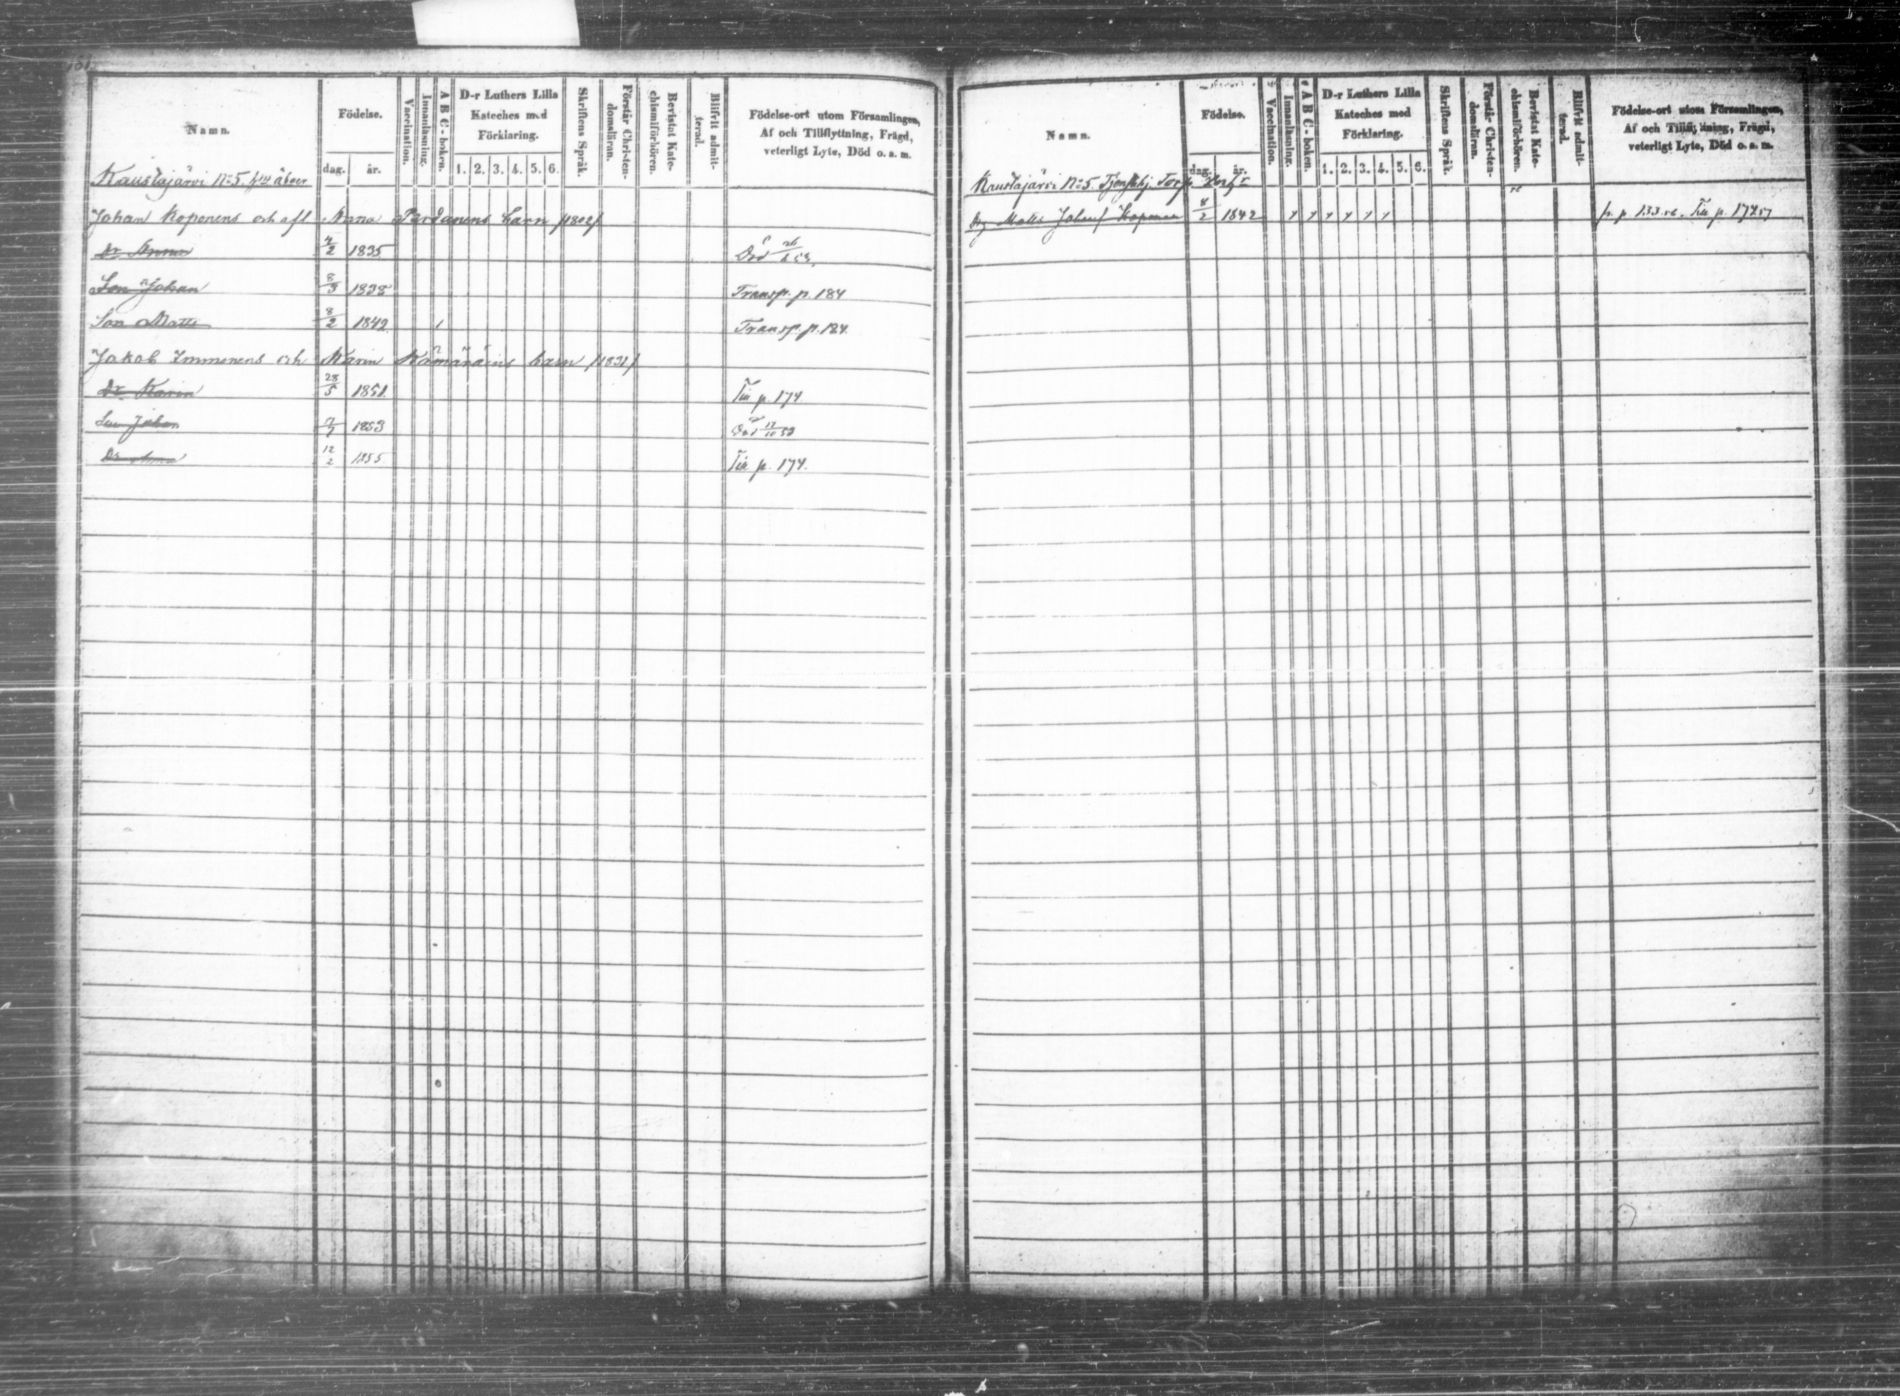 Namn.
Födelse.
dag. år.
Vaccination.
Innanläsning.
A B C-boken.
D-r Luthers Lilla
Kateches med
Förklaring.
1. 2. 3. 4. 5. 6.
Skriftens Språk.
Förstår Christen-
domsläran.
Bevistat Kate-
chismiförhören.
Blifvit admit-
terad.
Födelse-ort utom Församlingen,
Af och Tillflyttning, Frägd,
veterligt Lyte, Död o. s. m.
Kaustajärvi No 5.
Johan Koponens och afl Anna Pardanens barn /1802/
Dr Anna 4/2 1835 Död 26/6 53.
Son Johan 8/3 1838 Transp. p. 184
Son Matts 8/2 1842 Transp. p. 184.
Jakob Immonens och Karin Kämäräins barn /1831/
Dr Karin 28/5 1851 Till p. 174
Son Johan 1853 Död
Dr Anna 12/2 1855 Till p. 174.
Namn.
Födelse.
dag. år.
Vaccination.
Innanläsning.
A B C-boken.
D-r Luthers Lilla
Kateches med
Förklaring.
1. 2. 3. 4. 5. 6.
Skriftens Språk.
Förstår Christen-
domsläran.
Bevistat Kate-
chismiförhören.
Blifvit admit-
terad.
Födelse-ort utom Församlingen,
Af och Tillflyttning, Frägd,
veterligt Lyte, Död o. s. m.
Kaustajärvi No 5.
Dg Matts Johansf Koponen 8/2 1842 fr. p. 133. Till p. 174